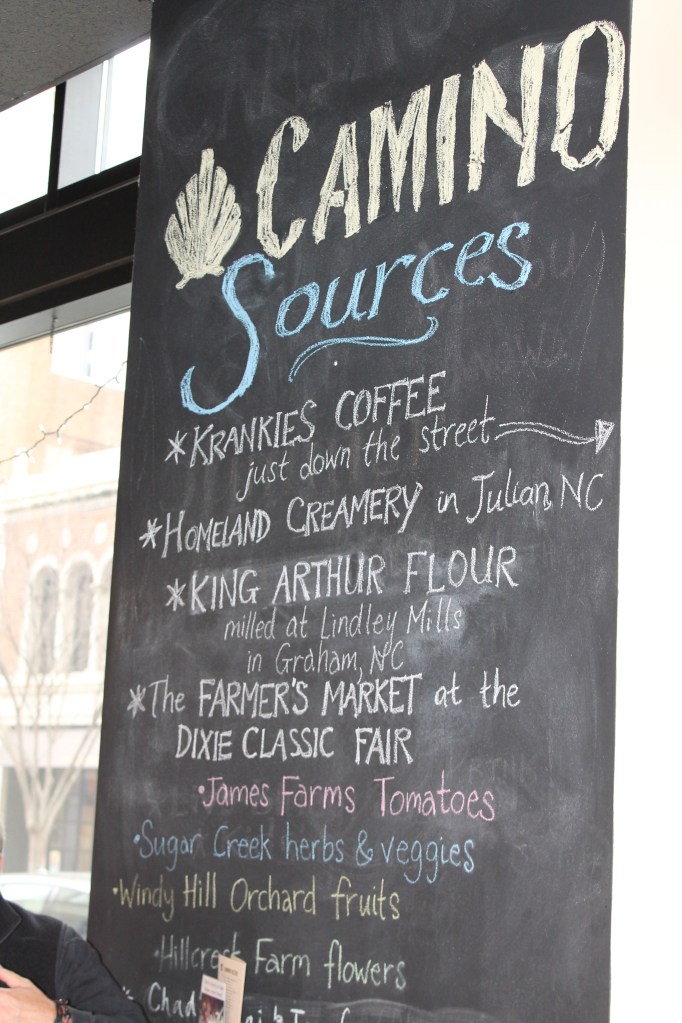 CAMINO
Sources
*KRANKIES COFFEE
just down the street
*HOMELAND CREAMERY in Julian, NC
*KING ARTHUR FLOUR
milled at Lindley Mills
in Graham, NC
*The FARMER'S MARKET at the
DIXIE CLASSIC FAIR
•James Farms Tomatoes
•Sugar Creek herbs & veggies
•Windy Hill Orchard fruits
•Hillcrest Farm flowers
Chad